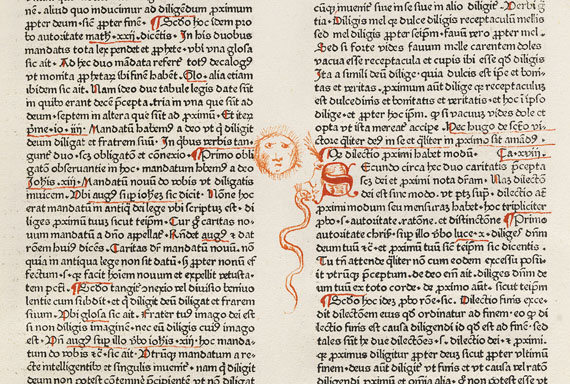 ne. aliud quo inducimur ad diligēdum ꝓximum
ꝓpter deum .s. ꝓpter finē. Scđo hoc idem pro
bo autoritate math. xxij. dicētis. In his duobus
mandatis tota lex pendet et ꝓphete. vbi vna glosa
sic ait. Ad hec duo mādata referē totꝰ decalogꝰ
vt monita ꝓphetaꝝ ibi finē habēt. Glo. alia etiam
ibidem sic ait. Nam ideo due tabule legis date sūt
in quibꝰ erant decē ꝓcepta. tria in vna que sūt ad
deum. septem in altera que sūt ad ꝓximū. Et itez
p̄me. io. iiij. Mandatū habemꝰ a deo vt q̇ diligit
deum diligat et fratrem suū. In q̇bus verbis tan
gunt̄ duo .scz obligatō et conexio. Primo obli
gatō obseruantie in hoc. mandatum hēmꝰ a deo
Johis. xiij. Mandatū nouū do vobis vt diligatis
inuicem. Vbi augꝰ sup iohes sic dicit. Nōne hoc
erat mandatū in antiq̇ dei lege vbi scriptuꝫ est. di
liges ꝓximū tuum sicut teipm̄. Cur g̊ caritas no
uum mandatū a dn̄o appellat̄. Rn̄det augꝰ z dat
rōem huiꝰ dicēs. Caritas dr̄ mandatū nouū. nō
quia in antiqua lege non sit datū. sꝫ ꝓpter nonū ef
fectum .s. qꝛ facit hoīem nouum et expellit vetusta
tem pctī. Scđo tangit̄ ānexio vel diuisio beniuo
lentie cum subdit. et q̇ diligit deū diligat et fratrem
suum. Vbi glosa sic ait. Frater tuꝰ imago dei est
si non diligis imaginē. nec eū diligis cuiꝰ imago
est. Dn̄ augꝰ sup illo vbo iohis. xiij. hoc manda
tum do vobis zc̄ sic ait. Vtrūqꝫ mandatum a re
cte intelligentibꝰ et singulis inuenit̄. nam q̇ diligat
deum non potest cōtemnē ꝓcipientē vt
cūqꝫ inuenit̄ siue in se siue in alio diligit̄.
tia. Diligis mel qꝛ dulce diligis receptaculū mellis
sed diligis ꝓpter seipm̄. fauū vero ꝓpter mel.
Sed si forte vides fauum melle carentem doles
vacua esse receptacula et cupis ibi esse qđ diligis
Ita a simili deū dilige. quia dulcis est ipe et boni
tas et veritas. ꝓximum aūt dilige qꝛ receptaculuꝫ
est dulcedinis et bonitatis et veritatis. et hoc ī ipso
dilige. et ꝓpter hoc ipm̄. qꝛ si vacuuꝫ vides dole et
opta vt ista mereat̄ accipe. Hec hugo de scō vi
ctore q̄liter deꝰ in se et q̄liter in ꝓximo sit amādꝰ.
De dilectio ꝓximi habet modū. Ca. xviii.
Secundo circa hec duo caritatis ꝓcepta
scz dei et ꝓximi nota dr̄am. Naz dilectō
dei est sine modo. vt ptꝫ sup. dilectio aūt
ꝓximi modum seu mensuraꝫ habet. hoc tripliciter
ꝓbo .s. autoritate. ratōne. et distinctōne Primo
autoritate christi. sup illo ꝟbo luce. x. diliges dn̄m
deum tuū zc̄. et ꝓximū tuū sic̄ teipm̄ sic dicentis.
Tu tn̄ attende q̄liter nō cum eodem excessu posu
it vtrūqꝫ ꝓceptum. de deo em̄ ait. diliges dn̄m de
um tuū ex toto corde. de ꝓximo aūt. sicut teipm̄
Scđo hoc idez ꝓbo rōe. sic. Dilectio finis exce
dit dilectōem eius qđ ordinatur ad finem. eo qꝫ di
lectio finis est causa diligendi id qđ est ad finē. sed
tales sūt he due dilectōes .s. dilectio dei z ꝓximi.
qꝛ ꝓximus diligitur ꝓpter deuꝫ sicut ꝓpter vltimū
finem. deus aūt diligit̄ vt finis et vt causa vel ratō
diligendi ꝓximū et om̄ia alia.